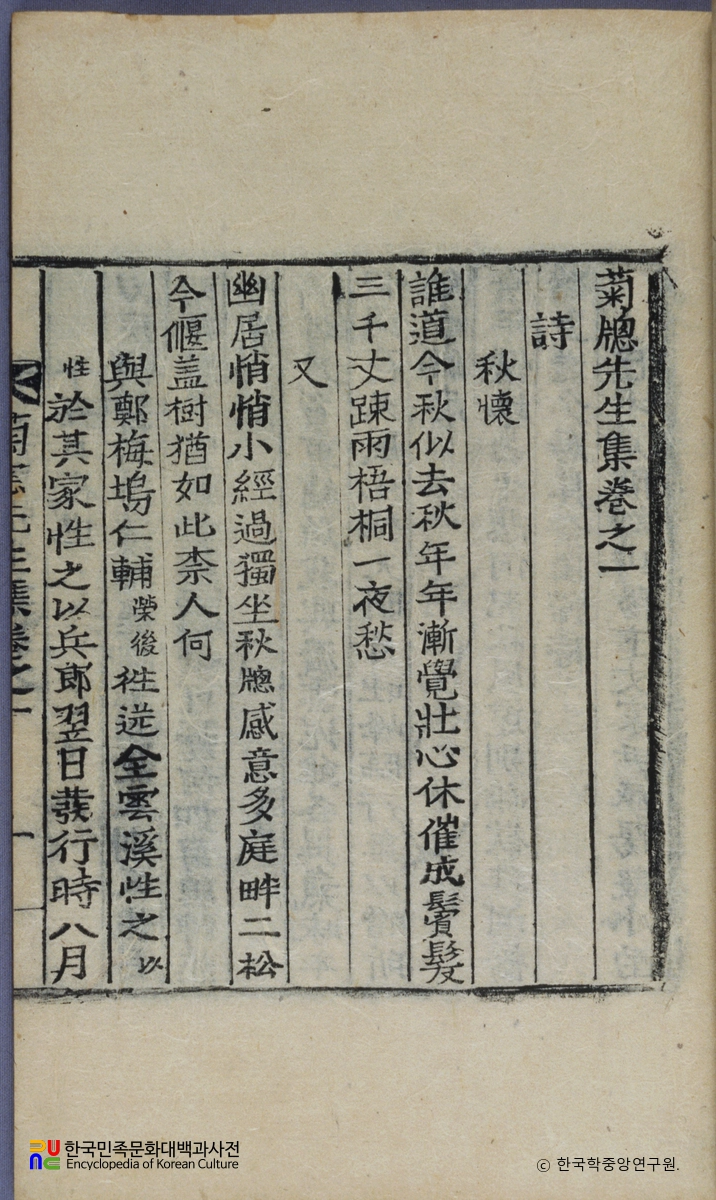 菊牕先生集卷之一
詩
秋懷
誰道今秋似去秋年年漸覺壯心休催成鬢髮
三千丈踈雨梧桐一夜愁
又
幽居悄悄小經過獨坐秋牕感意多庭畔二松
今偃盖樹猶如此柰人何
與鄭梅塢仁輔榮後徃送全雲溪性之以
性於其家性之以兵郞翌日發行時八月
菊牕先生集卷之一
一
한국민족문화대백과사전
Encyclopedia of Korean Culture
© 한국학중앙연구원.